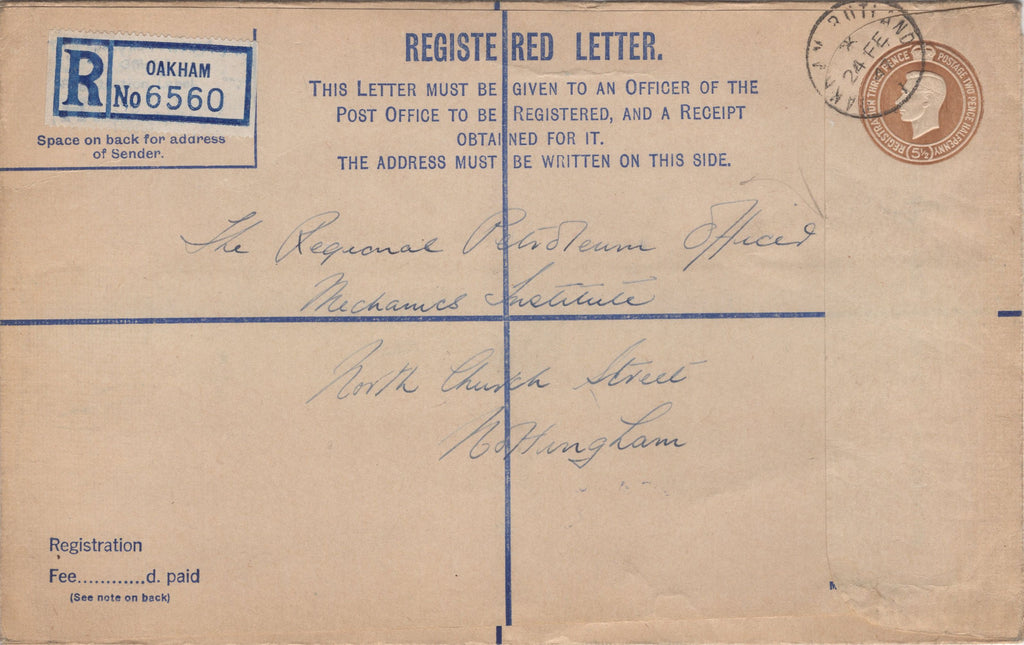 R
OAKHAM
No 6560
Space on back for address
of Sender.
REGISTERED LETTER.
THIS LETTER MUST BE GIVEN TO AN OFFICER OF THE
POST OFFICE TO BE REGISTERED, AND A RECEIPT
OBTAINED FOR IT.
THE ADDRESS MUST BE WRITTEN ON THIS SIDE.
OAKHAM RUTLAND
24 FE
41
REGISTRATION THREE PENCE
POSTAGE TWO PENCE HALFPENNY
(5½)
The Regional Petroleum Officer
Mechanics Institute
North Church Street
Nottingham
Registration
Fee............d. paid
(See note on back)